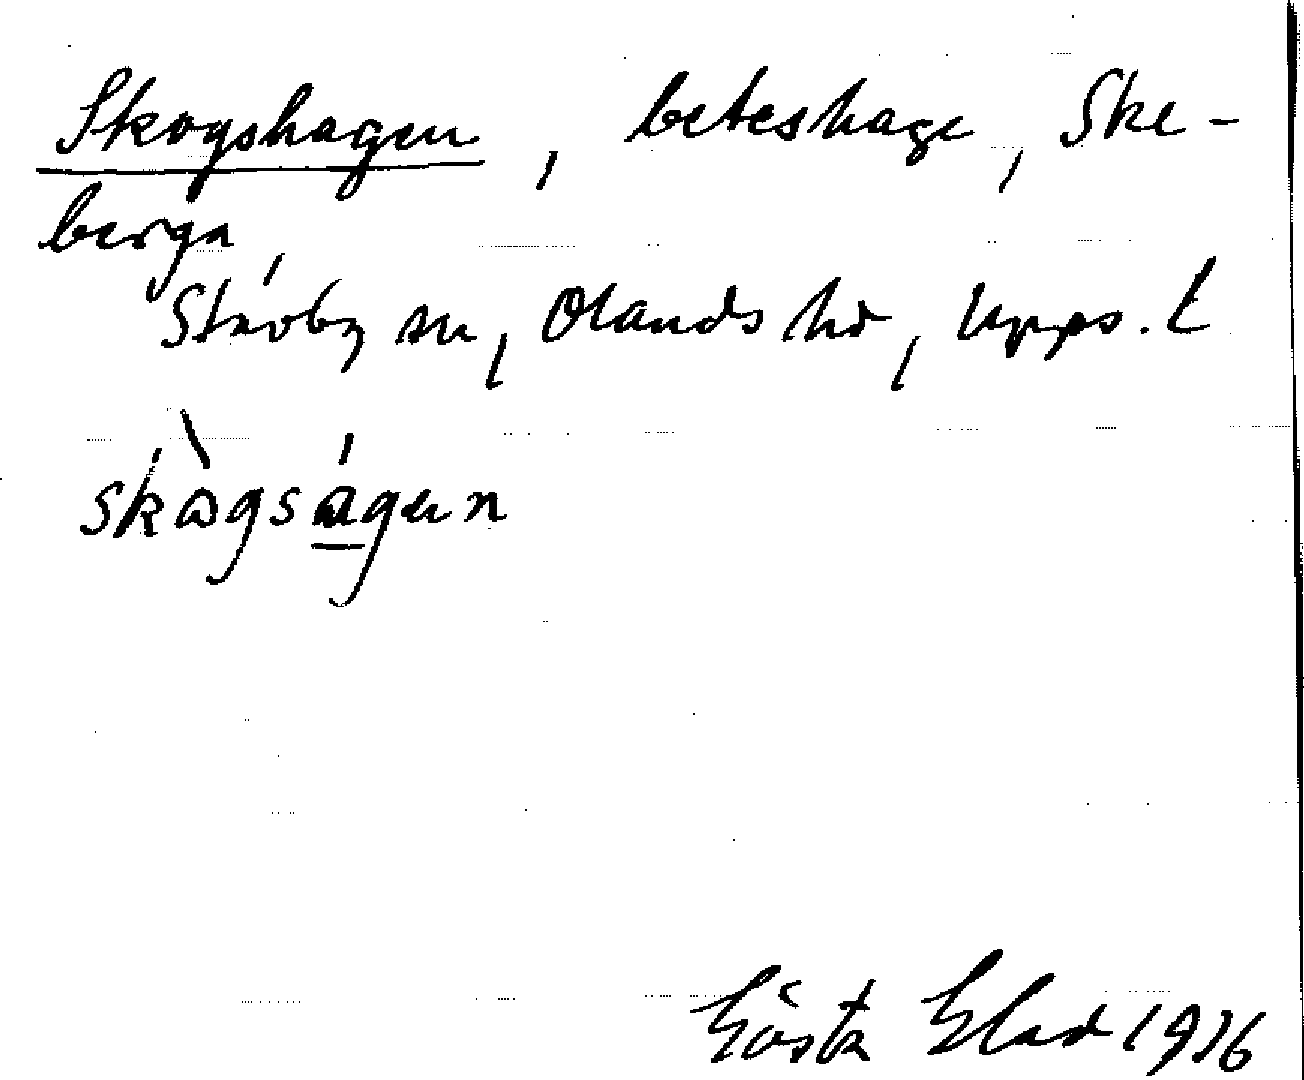 Skogshagen, beteshage, Ske-
berga,
Stavby sn, Olands hd, Upps. l
skògságen
Gösta Elad 1936